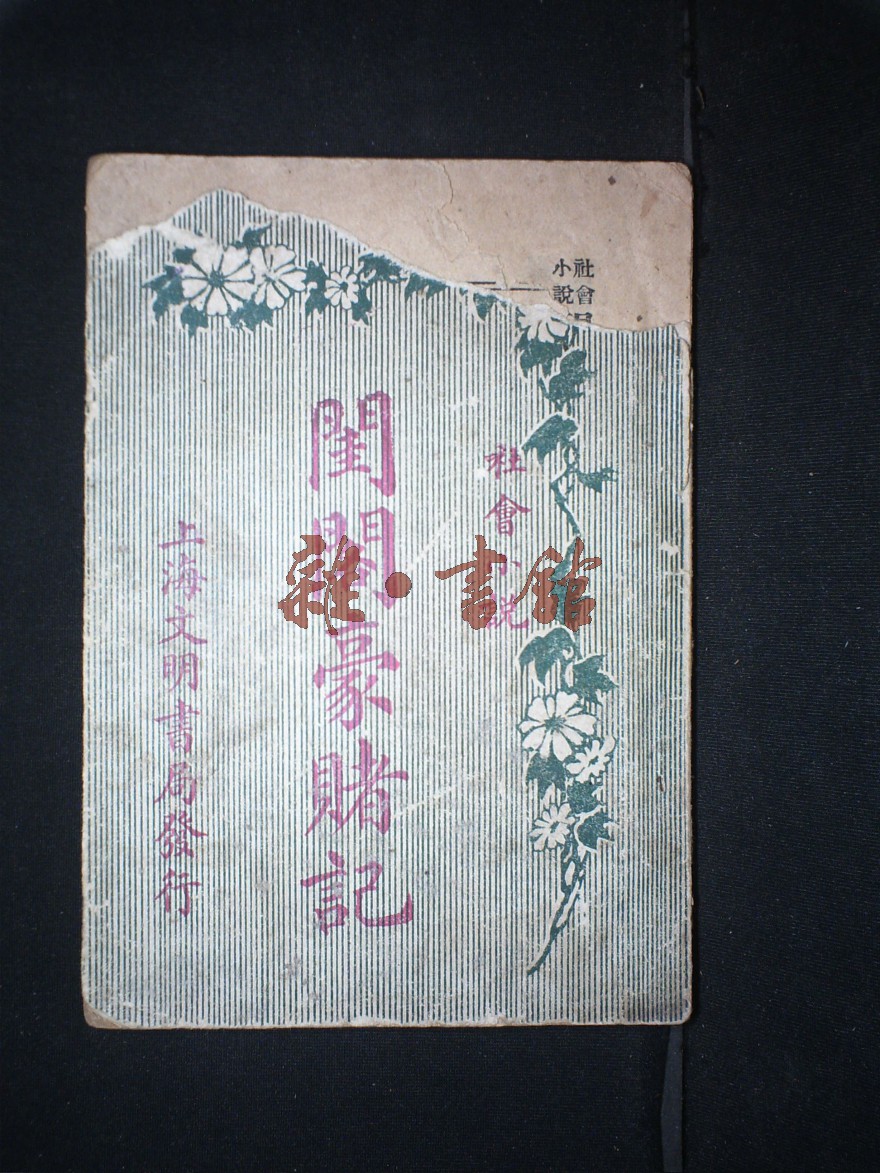 社會
小說
社會小説
閨閣豪賭記
上海文明書局發行
雜·書館